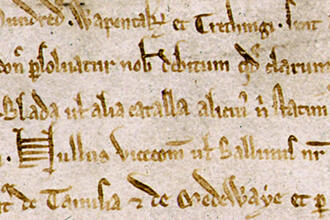 hundred. Wapentak̄ et Trethingi. sint
don' ꝑsoluatur nob̄ debitum qd̄ clarum
Blada ul̓ alia catalla alicui' n̄ statim
Nullus vicecom̄ ul̓ Balliuus nr̄
de Tamisia ⁊ de Medewaye et ꝑ